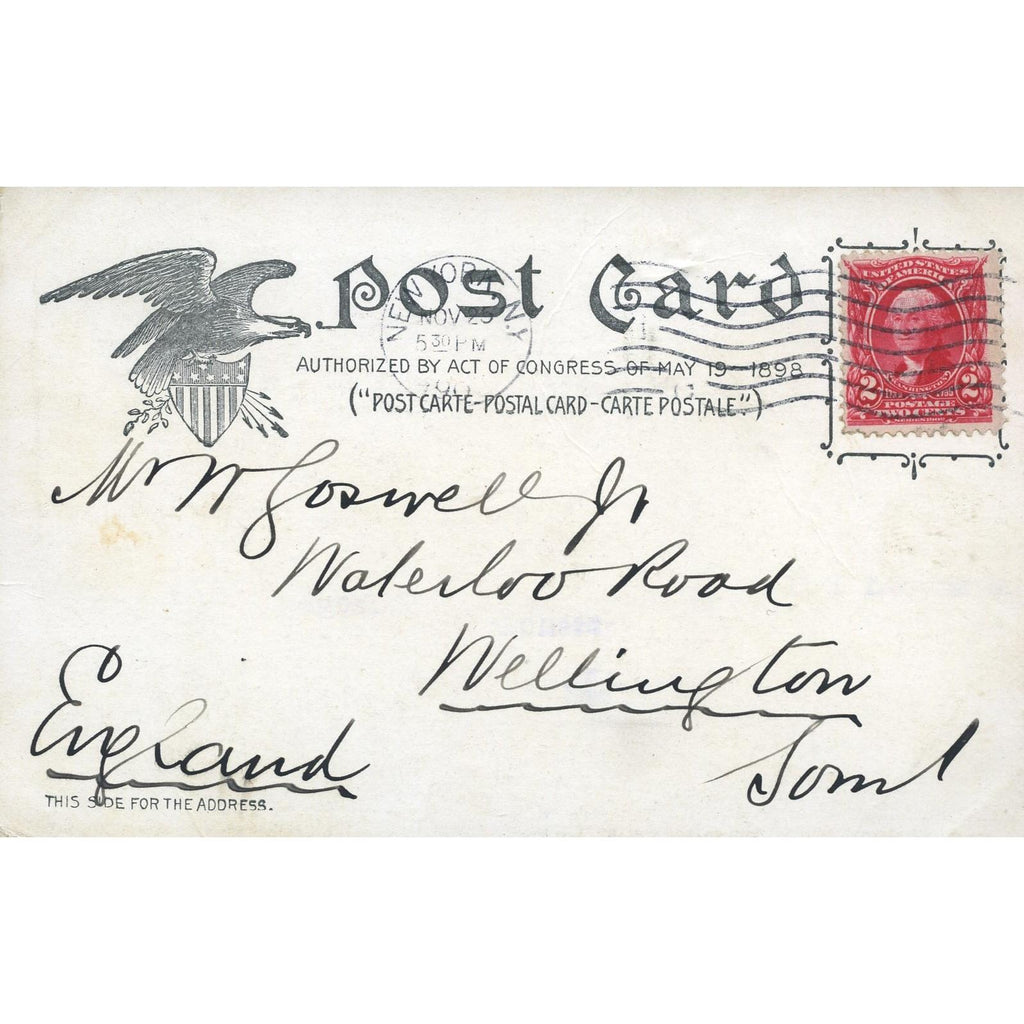 Post Card
NEW YORK, N.Y.
NOV 25
5 30 PM
AUTHORIZED BY ACT OF CONGRESS OF MAY 19 1898
("POST CARTE-POSTAL CARD-CARTE POSTALE")
UNITED STATES
OF AMERICA
WASHINGTON
2 2
POSTAGE
TWO CENTS
Mr W Goswell Jr
Waterloo Road
Wellington
Soml
England
THIS SIDE FOR THE ADDRESS.